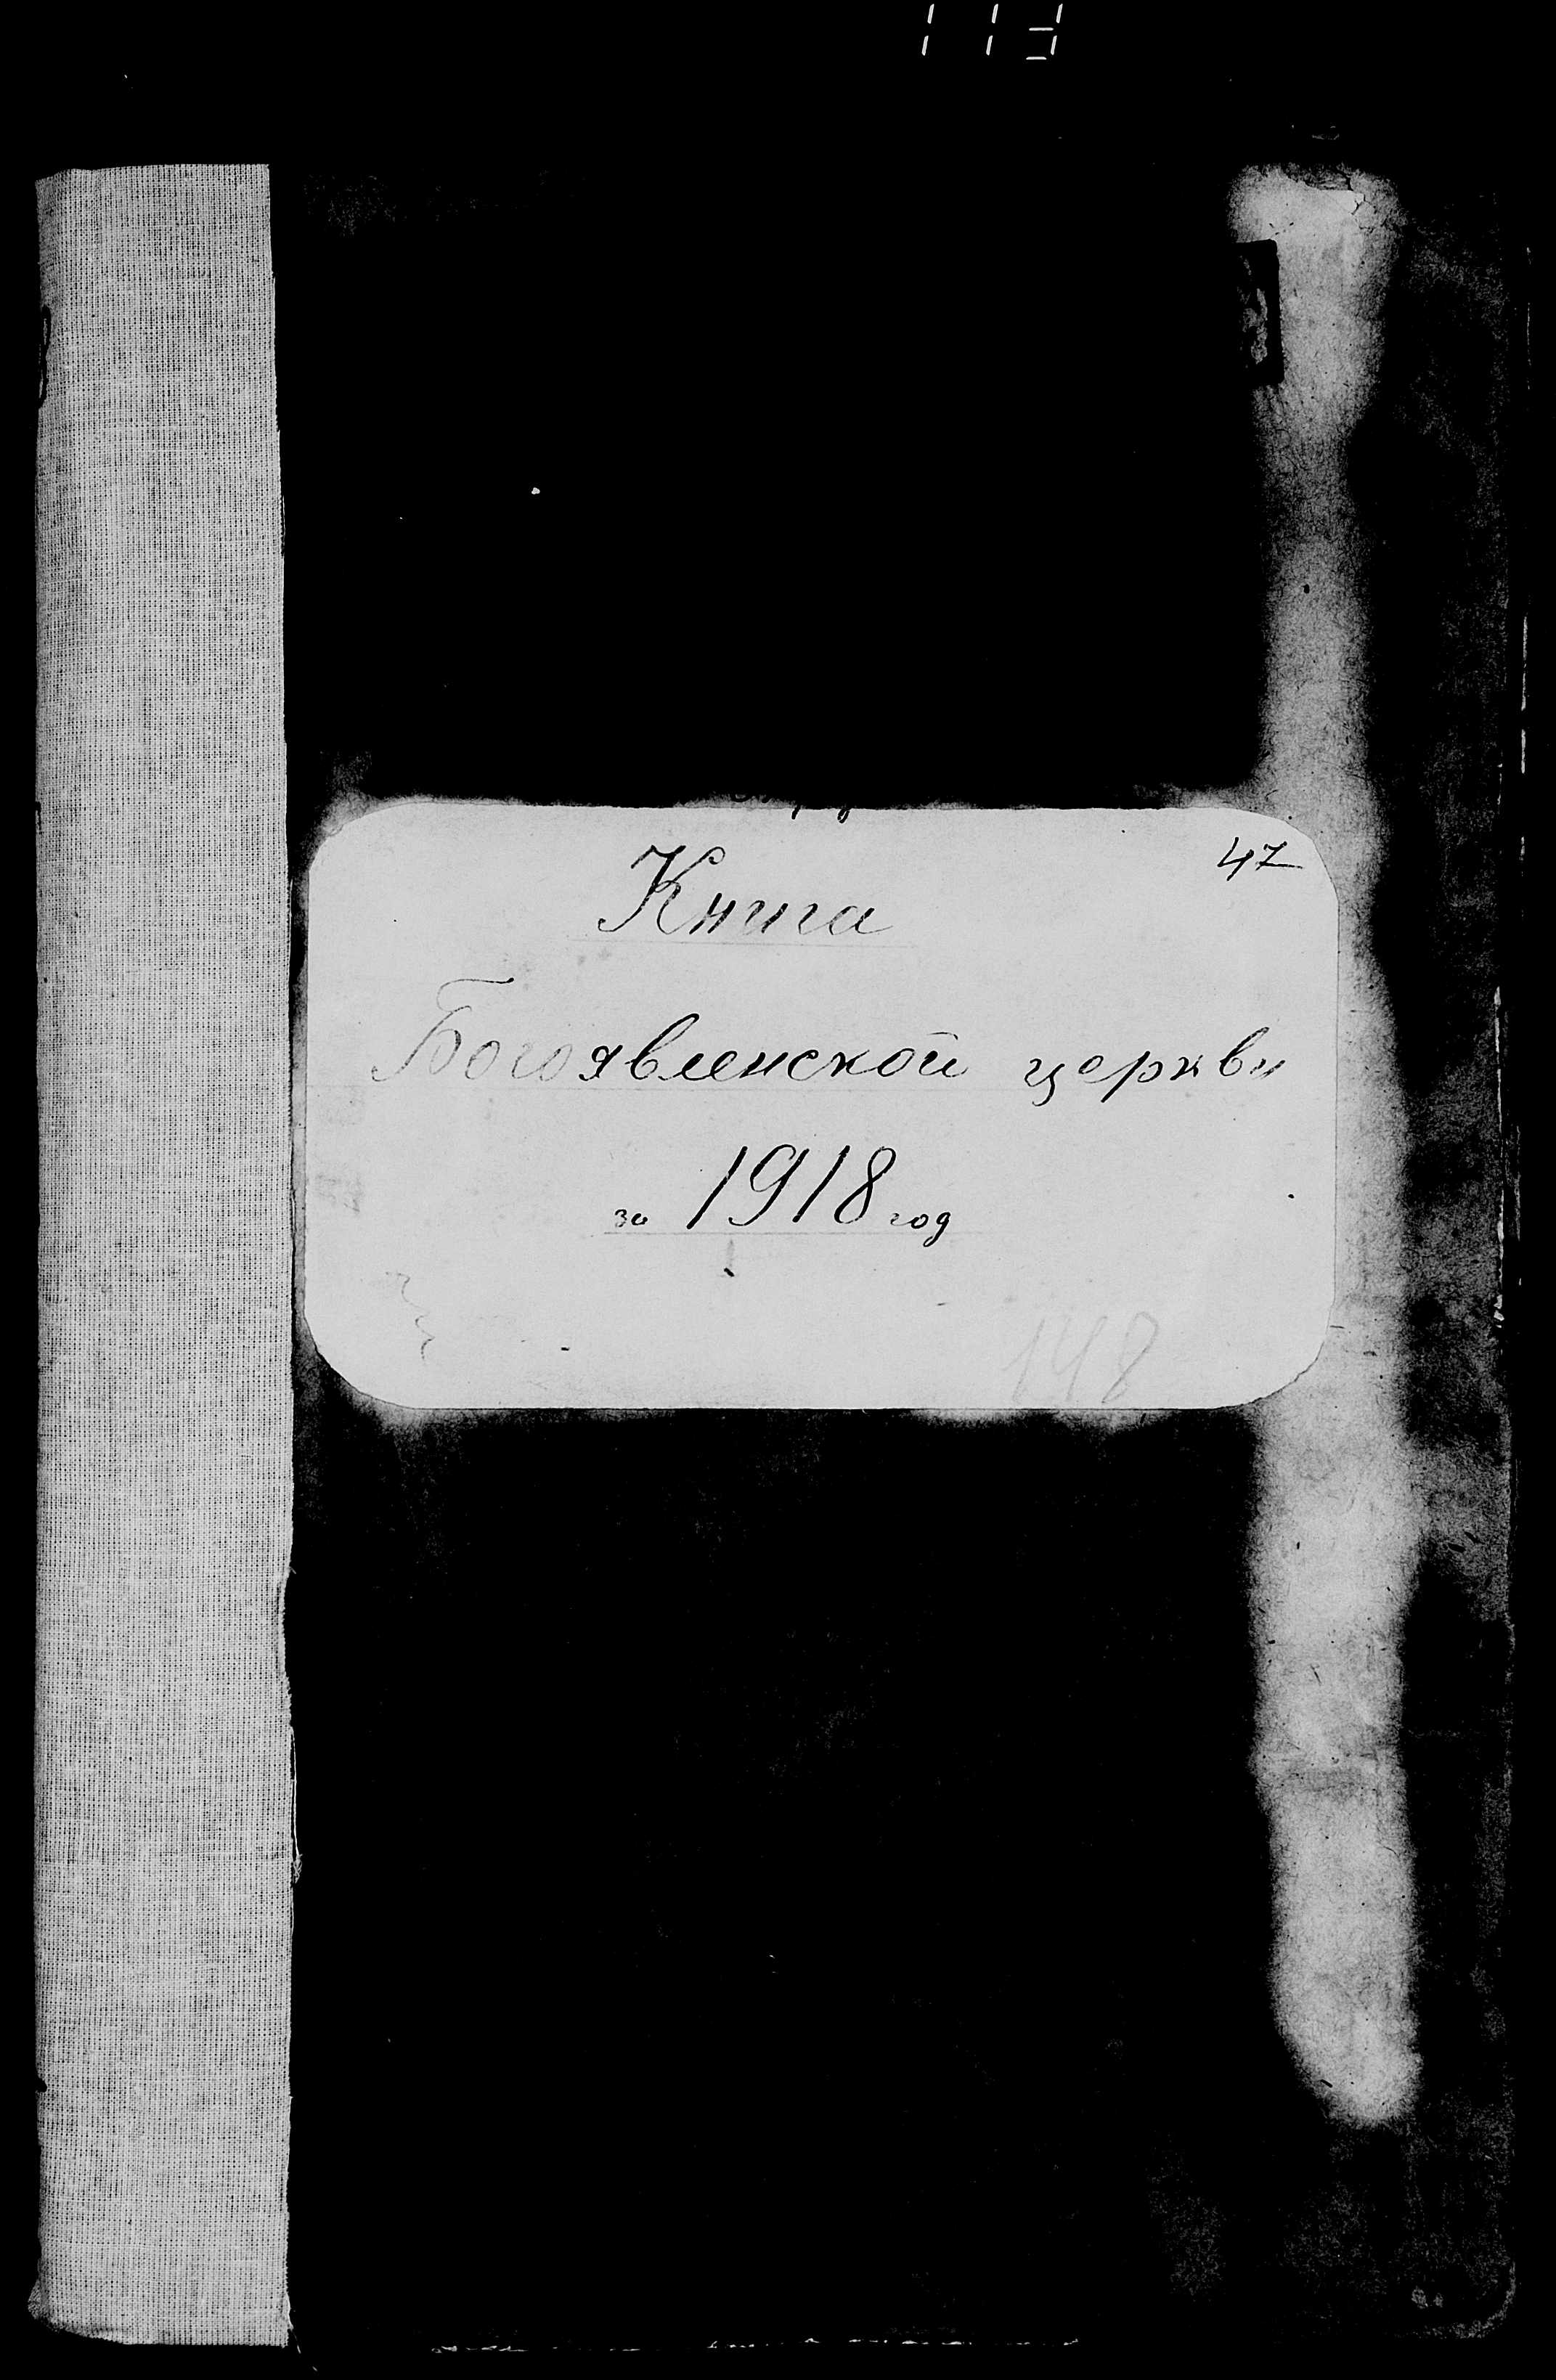 47
Книга
Богоявленской церкви
за 1918 год
148